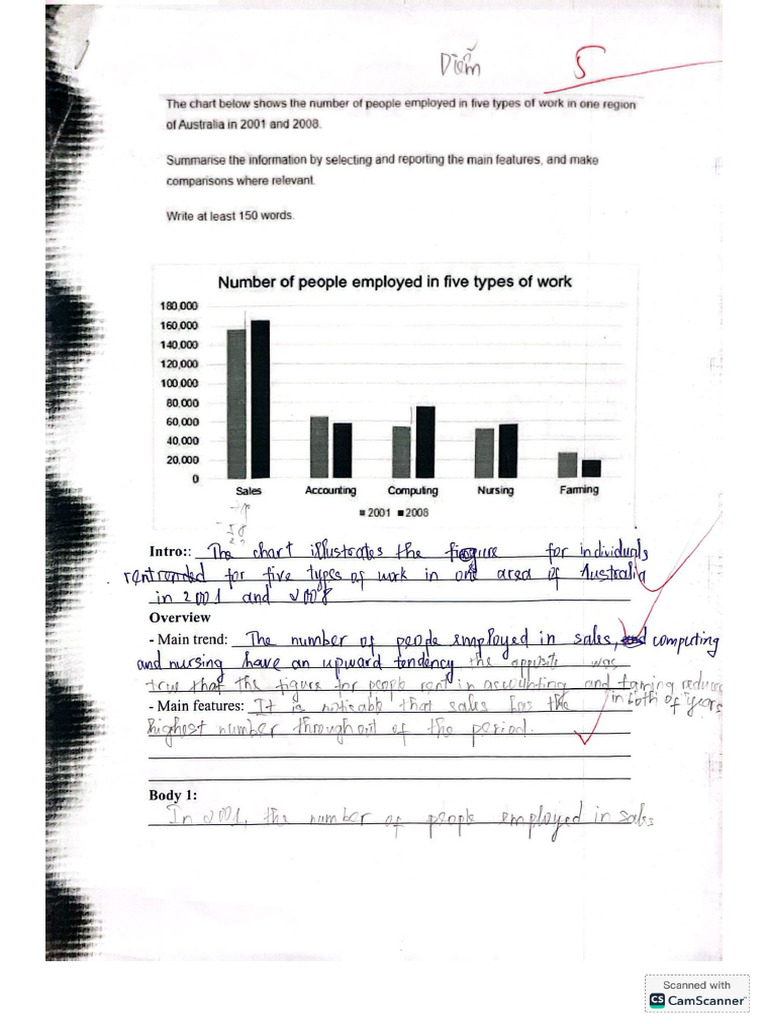 Diễm
5
The chart below shows the number of people employed in five types of work in one region
of Australia in 2001 and 2008.
Summarise the information by selecting and reporting the main features, and make
comparisons where relevant.
Write at least 150 words.
Number of people employed in five types of work
180,000
160,000
140,000
120,000
100,000
80,000
60,000
40,000
20,000
0
Sales Accounting Computing Nursing Farming
2001 2008
Intro:: The chart illustrates the figure for individuals
for five types of work in one area of Australia
in 2001 and 2008
Overview
- Main trend: The number of people employed in sales, computing
and nursing have an upward tendency the opposite was
true that the figure for people rent in accounting and farming reduce
in both of years
- Main features: It is noticable that sales has the
highest number throughout of the period.
Body 1:
In 2001, the number of people employed in sales
Scanned with
CS CamScanner